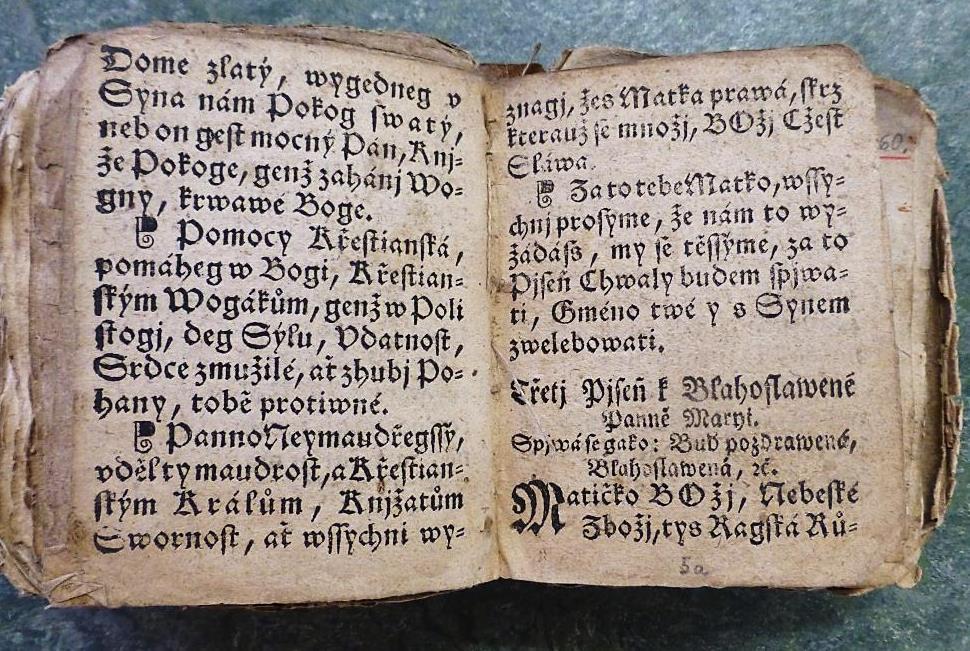 Dome zlatý, wygedneg v
Syna nám Pokog swatý,
nebon gest mocný Pán, Knj-
že Pokoge, genž zahánj Wo-
gny, krwawé Boge.
Pomocy Křestianská,
pomáheg w Bogi, Křestian-
ským Wogákům, genž w Poli
stogj, deg Sýlu, Vdatnost,
Srdce zmužilé, ať zhubj Po-
hany, tobě protiwné.
Panno Neymaudřegssý,
vděl ty maudrost, a Křestian-
ským Králům, Knjžatům
Swornost, ať wssychni wy-
znagj, žes Matka prawá, skrz
kterauž se množj, BOžj Cžest
Sláwa.
Za to tebe Matko, wssy-
chnj prosýme, že nám to wy-
žádáss, my se těssýme, za to
Pjseň Chwaly budem spjwa-
ti, Gméno twé y s Synem
zwelebowati.
Třetj Pjseň k Blahoslawené
Panně Maryi.
Spjwá se gako: Buď pozdrawená,
Blahoslawená, ꝛc.
Matičko BOžj, Nebeské
Zbožj, tys Ragská Rů-
60.
5a